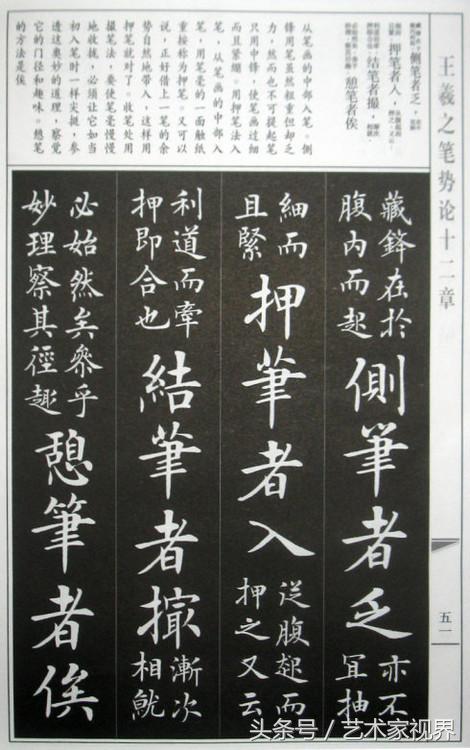 王羲之笔势论十二章
五一
侧笔者乏,
押笔者人,
结笔者撮,
憩笔者俟
从笔画的中部入笔。侧
锋用笔虽然粗重但却乏
力,然而也不可提起笔
只用中锋,使笔画过细
而且紧绷。用押笔法入
笔,从笔画的中部入
笔,用笔毫的一面触纸
重按称为押笔。又可以
说,正好借上一笔的余
势自然地带入,这样用
押笔就对了。收笔处用
撮笔法,要使笔毫慢慢
地收拢,必须让它如当
初入笔时一样尖挺,参
透这奥妙的道理,察觉
它的门径和趣味。憩笔
的方法是俟
藏鋒在於
腹內而起
側筆者乏
亦不
冝抽
細而
且緊
押筆者入
從腹起而
押之又云
利道而牽
押即合也
結筆者撮
漸次
相就
必始然矣參乎
妙理察其徑趣
憩筆者俟
头条号 / 艺术家视界